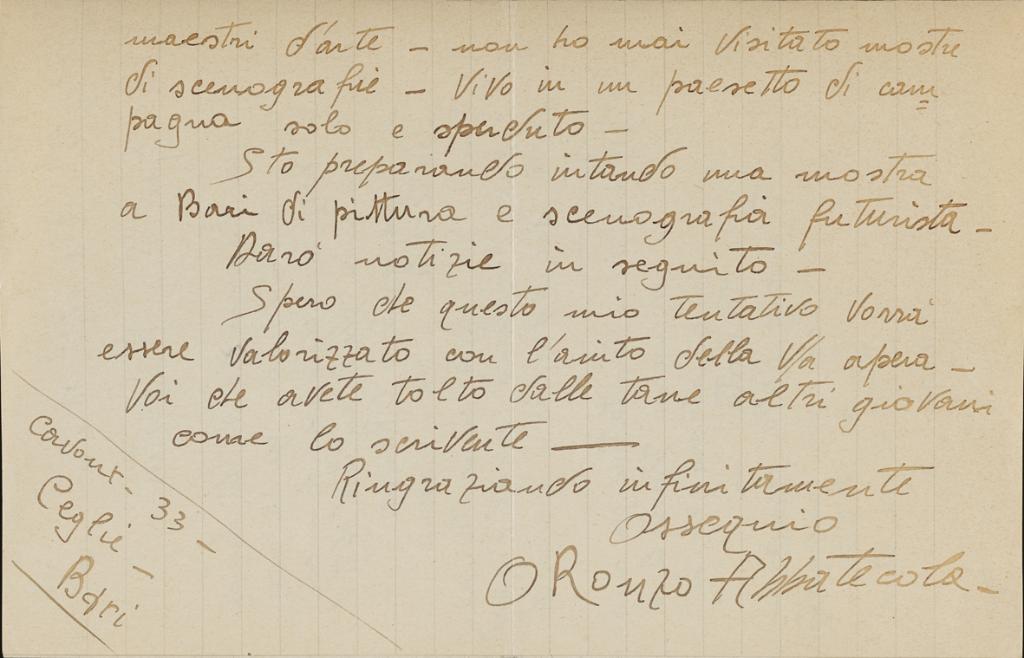 maestri d'arte - non ho mai visitato mostre
di scenografie - Vivo in un paesetto di cam=
pagna solo e sperduto -
Sto preparando intando una mostra
a Bari di pittura e scenografia futurista -
Darò notizie in seguito -
Spero che questo mio tentativo vorrà
essere valorizzato con l'aiuto della Vs opera -
Voi che avete tolto dalle tane altri giovani
come lo scrivente —
Ringraziando infinitamente
Ossequio
ORonzo Abbatecola -
Cavour - 33 -
Ceglie -
Bari